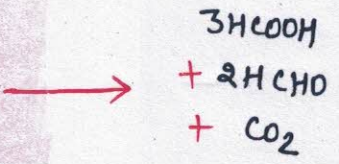 3HCOOH
+ 2HCHO
+ CO₂